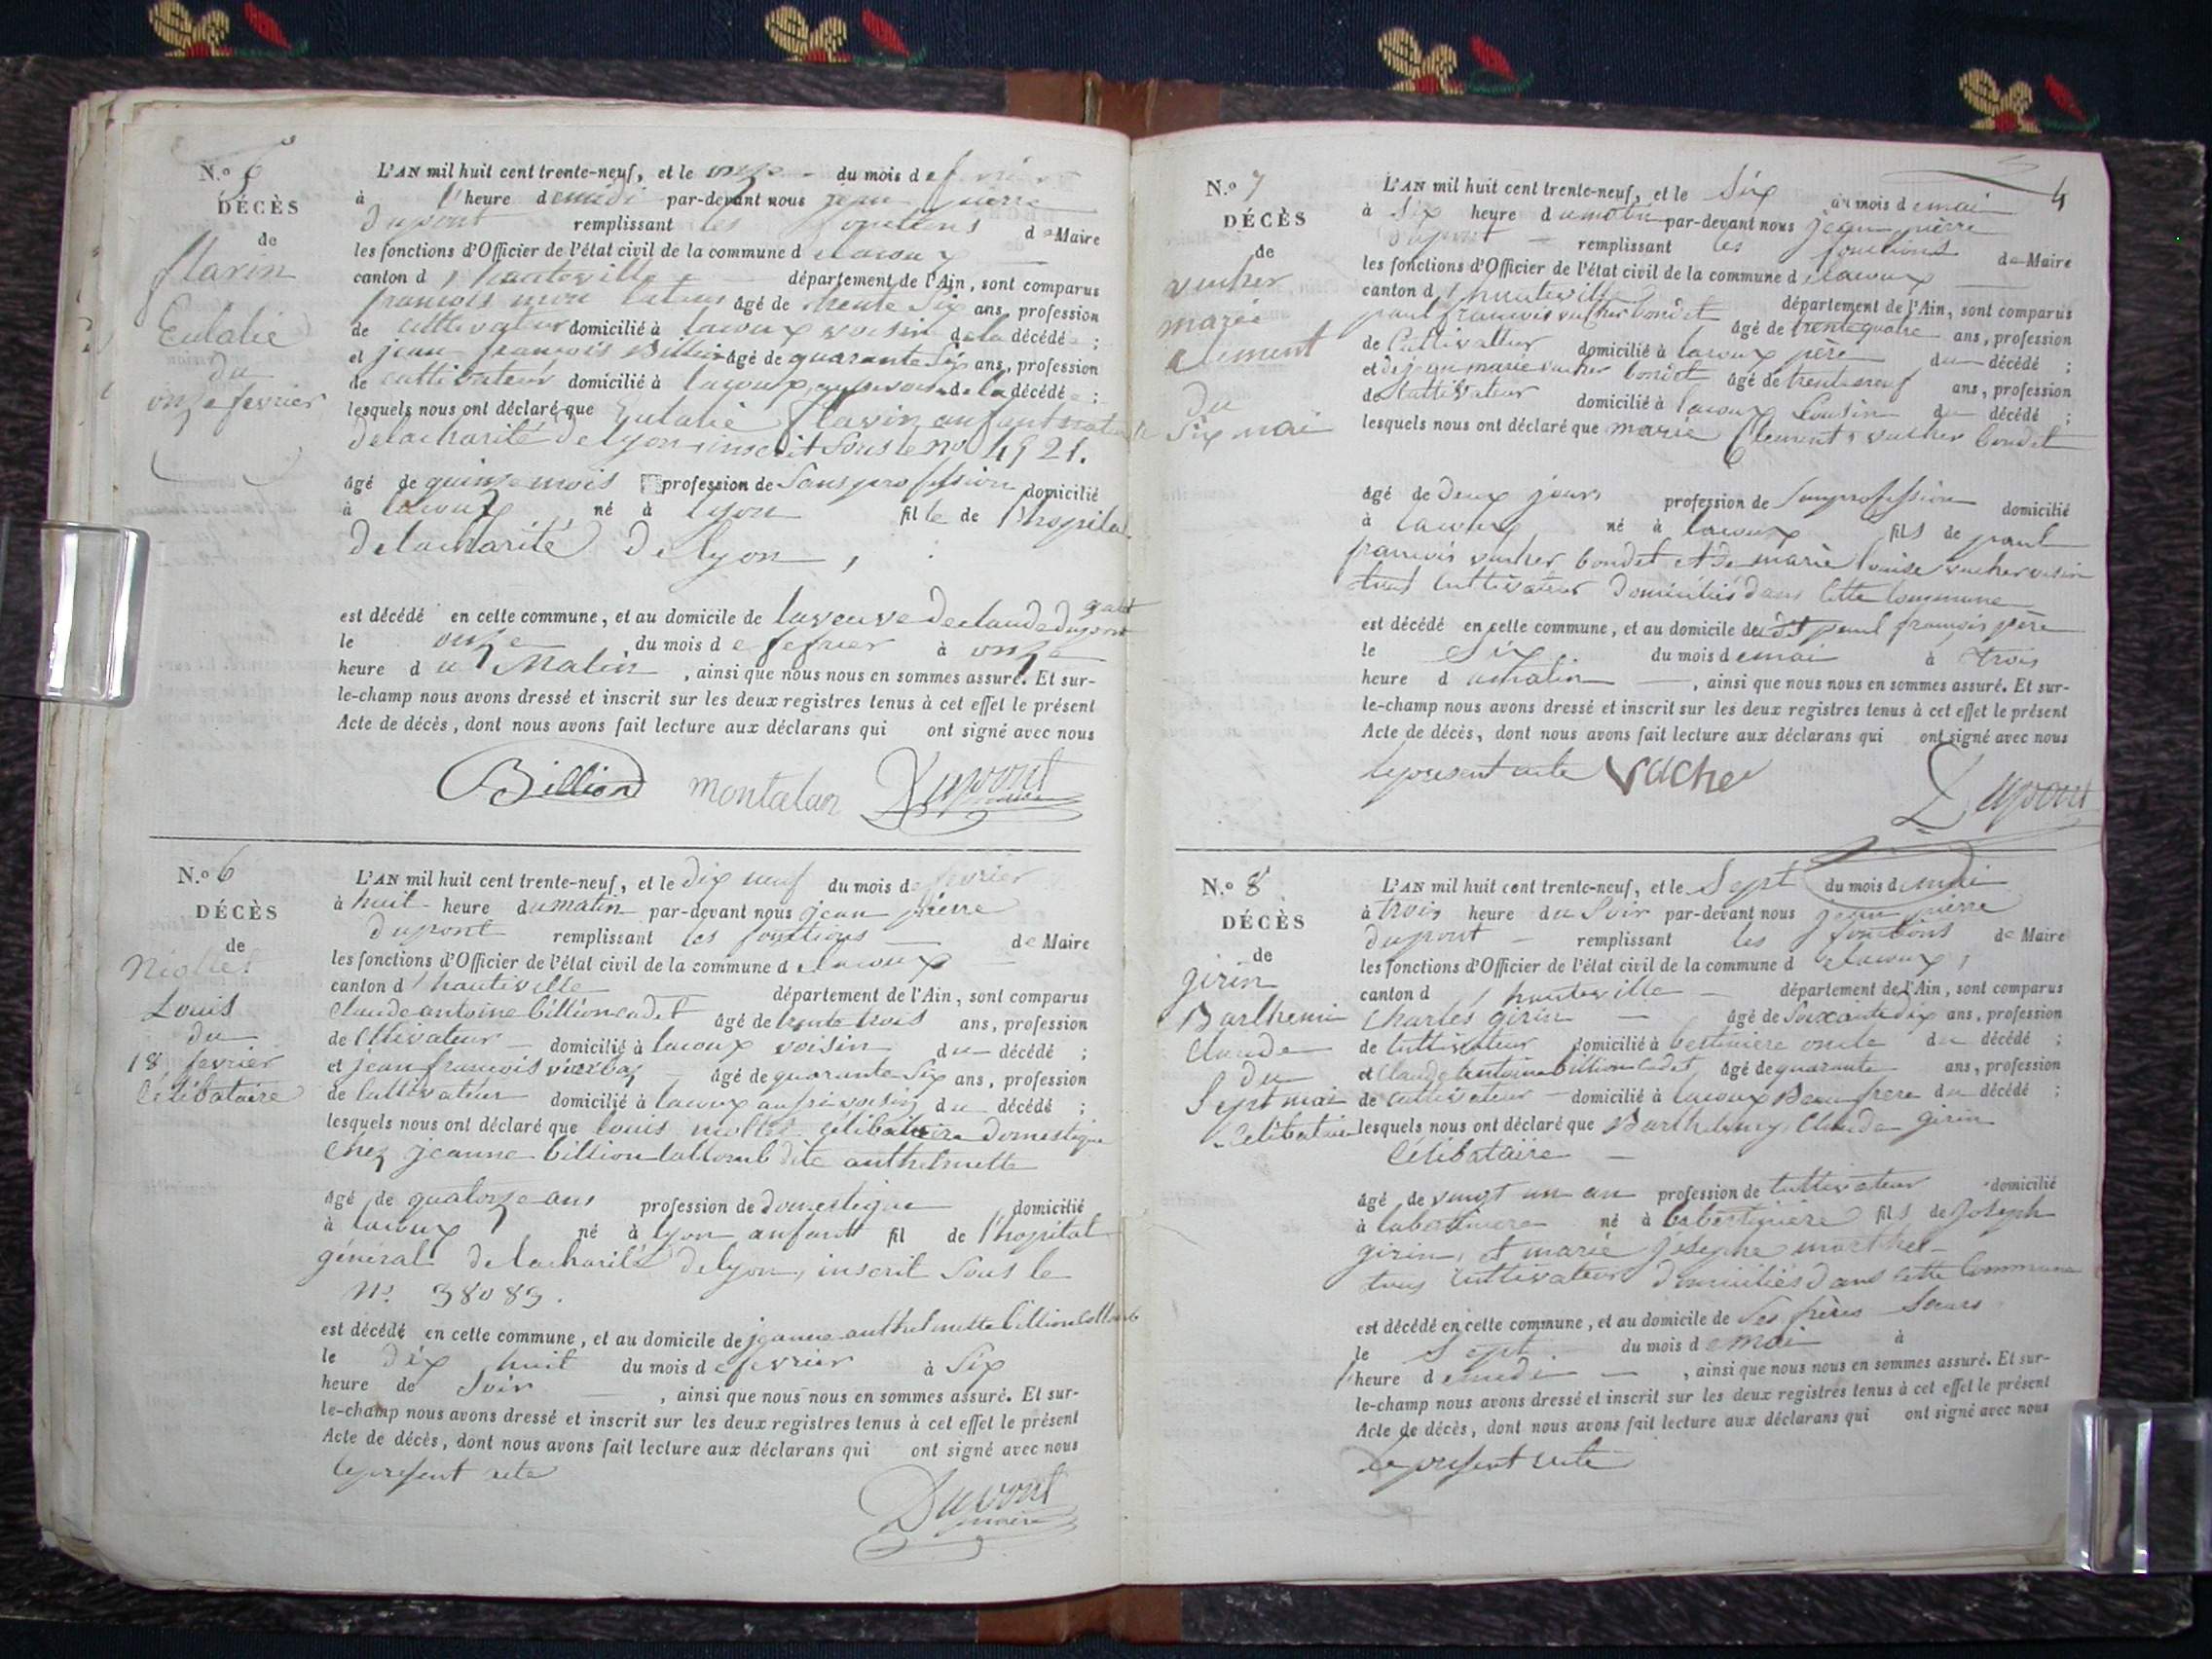 N.o
DÉCÈS
de
flavin
Eulalie
du
onze fevrier
L'AN mil huit cent trente-neuf, et le onze du mois de fevrier
à 1' heure demidi par-devant nous jean pierre
dupont remplissant les fonctions de Maire
les fonctions d'Officier de l'état civil de la commune d elacoux
canton d 'hauteville département de l'Ain, sont comparus
francois âgé de trente six ans, profession
de cultivateur domicilié à lacoux voisin dela décédée ;
et jean françois Billion âgé de quarante six ans, profession
de cultivateur domicilié à lacoux aussi voisin de la décédée ;
lesquels nous ont déclaré que Eulalie flavin enfant
delacharité de lyon inscrit sous le no 4921.
âgé de quinze mois profession de sans profession domicilié
à lacoux né à lyon fille de l'hopital
delacharité de lyon,
est décédé en cette commune, et au domicile de laveuve declaude dupont
le onze du mois de fevrier à onze
heure du Matin, ainsi que nous nous en sommes assuré. Et sur-
le-champ nous avons dressé et inscrit sur les deux registres tenus à cet effet le présent
Acte de décès, dont nous avons fait lecture aux déclarans qui ont signé avec nous
Billion montalan Dupont
maire
N.o 6
DÉCÈS
de
Niollet
Louis
du
18 fevrier
Célibataire
L'AN mil huit cent trente-neuf, et le dix neuf du mois de fevrier
à huit heure dumatin par-devant nous jean pierre
dupont remplissant les fonctions de Maire
les fonctions d'Officier de l'état civil de la commune d elacoux
canton d 'hauteville département de l'Ain, sont comparus
Claude antoine billion cadet âgé de trente trois ans, profession
de cltivateur domicilié à lacoux voisin du décédé ;
et jean francois âgé de quarante six ans, profession
de cultivateur domicilié à lacoux aussi voisin du décédé ;
lesquels nous ont déclaré que louis niollet célibataire domestique
chez jeanne billion collomb dite anthelmette
âgé de quatorze ans profession de domestique domicilié
à lacoux né à lyon enfant fil de l'hopital
général delacharité delyon, inscrit sous le
No 38083.
est décédé en cette commune, et au domicile de jeanne anthelmette billion collomb
le dix huit du mois de fevrier à six
heure de soir, ainsi que nous nous en sommes assuré. Et sur-
le-champ nous avons dressé et inscrit sur les deux registres tenus à cet effet le présent
Acte de décès, dont nous avons fait lecture aux déclarans qui ont signé avec nous
leprésent acte
Dupont
maire
4
N.o 7
DÉCÈS
de
vucher
marie
clement
du
Six mai
L'AN mil huit cent trente-neuf, et le Six du mois demai
à Six heure dumatin par-devant nous jean pierre
dupont remplissant les fonctions de Maire
les fonctions d'Officier de l'état civil de la commune d elacoux
canton d 'hauteville département de l'Ain, sont comparus
paul francois vucher bondet âgé de trente quatre ans, profession
de Cultivateur domicilié à lacoux père du décédé ;
et marie vucher bondet âgé de trente neuf ans, profession
de Cultivateur domicilié à lacoux Cousin du décédé ;
lesquels nous ont déclaré que marie Clement vucher bondet
âgé de deux jours profession de Sans profession domicilié
à lacoux né à lacoux fils de paul
francois vucher bondet et de marie louise vucher voisin
tous cultivateur domiciliés dans cette commune
est décédé en cette commune, et au domicile dudit paul françois père
le Six du mois demai à trois
heure d umatin, ainsi que nous nous en sommes assuré. Et sur-
le-champ nous avons dressé et inscrit sur les deux registres tenus à cet effet le présent
Acte de décès, dont nous avons fait lecture aux déclarans qui ont signé avec nous
leprésent acte Vache
Dupont
N.o 8
DÉCÈS
de
girin
Barthemi
claude
du
Sept mai
Celibataire
L'AN mil huit cent trente-neuf, et le Sept du mois demai
à trois heure du Soir par-devant nous jean pierre
dupont remplissant les fonctions de Maire
les fonctions d'Officier de l'état civil de la commune d elacoux,
canton d 'hauteville département de l'Ain, sont comparus
Charles girin âgé de Soixante dix ans, profession
de Cultivateur domicilié à oncle du décédé ;
et Claude Antoine billion cadet âgé de quarante ans, profession
de cultivateur domicilié à lacoux Beau frere du décédé ;
lesquels nous ont déclaré que Barthelemy Claude girin
Célibataire
âgé de vingt un an profession de Cultivateur domicilié
à né à fils de Joseph
girin, et marie josephe
tous cultivateur domiciliés dans cette Commune
est décédé en cette commune, et au domicile de ses frères Sœurs
le Sept du mois demai à
1' heure demidi, ainsi que nous nous en sommes assuré. Et sur-
le-champ nous avons dressé et inscrit sur les deux registres tenus à cet effet le présent
Acte de décès, dont nous avons fait lecture aux déclarans qui ont signé avec nous
Le présent acte